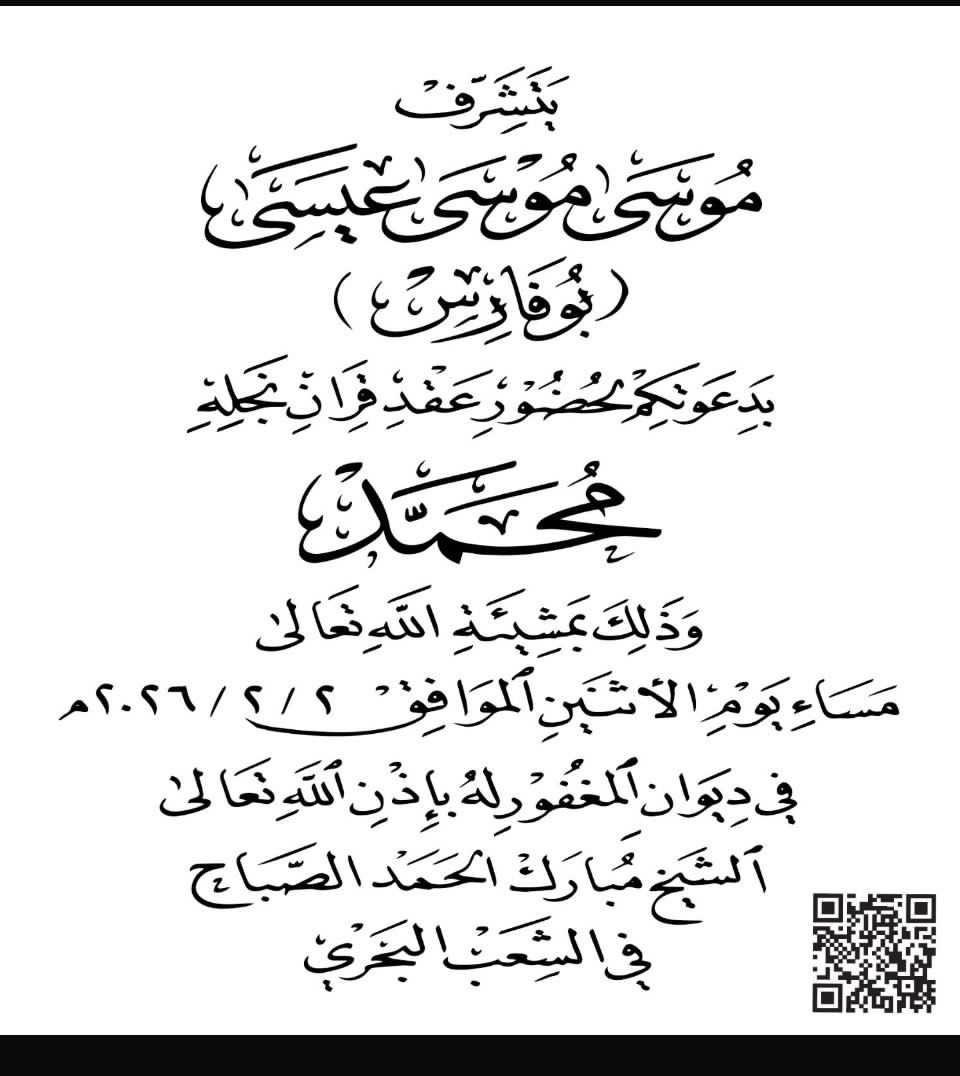 يَتَشَرَّفُ
مُوسَى مُوسَى عِيسَى
(بُوفَارِسْ)
بِدَعْوَتِكُمْ لِحُضُورِ عَقْدِ قِرَانِ نَجْلِهِ
مُحَمَّدْ
وَذٰلِكَ بِمَشِيئَةِ اللهِ تَعَالَى
مَسَاءِ يَوْمِ الاثْنَيْنِ المُوَافِق ٢ / ٢ / ٢٠٢٦م
في دِيوَان المَغْفُور لَهُ بِإِذْنِ اللهِ تَعَالَى
الشَّيْخ مُبَارَك الحَمَد الصّبَاح
في الشّعَب البَحَرِيْ